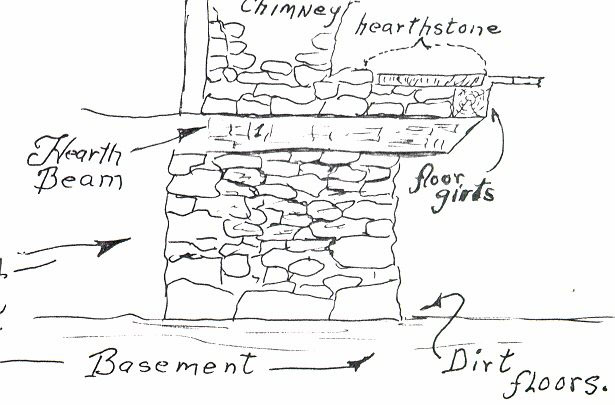 Chimney
hearthstone
Hearth
Beam
floor
girts
Basement
Dirt
floors.